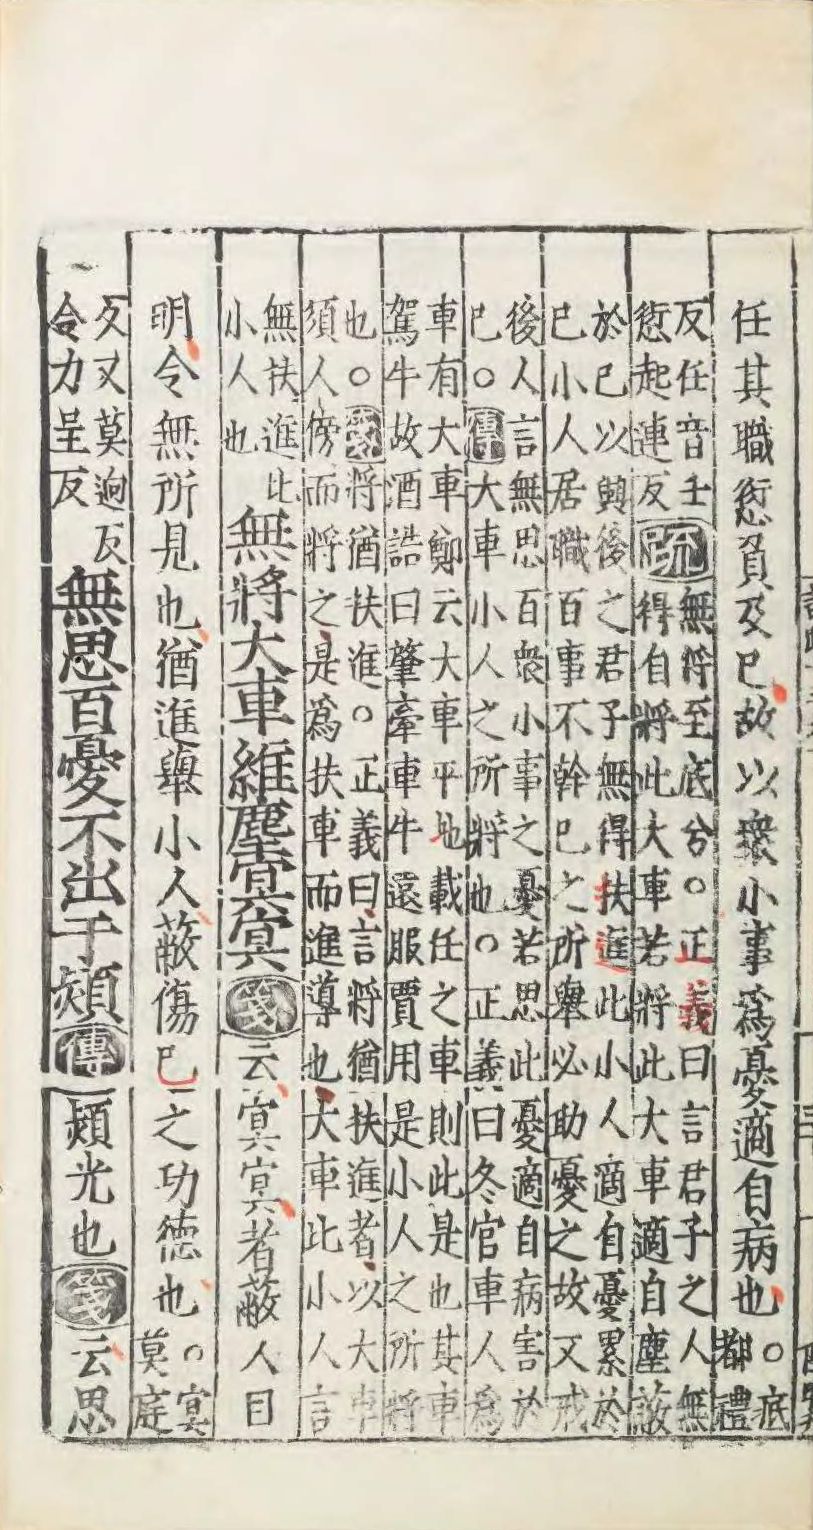 任其職愆負及巳故以衆小事爲憂適自病也。底都禮
反任音壬
愆起連反
疏
無將至底兮。正義曰言君子之人無
得自將此大車若將此大車適自塵蔽
於巳以興後之君子無得扶進此小人適自憂累於
巳小人居職百事不幹巳之所舉必助憂之故又戒
後人言無思百衆小事之憂若思此憂適自病害於
巳。傳大車小人之所將也。正義曰冬官車人爲
車有大車鄭云大車平地載任之車則此是也其車
駕牛故酒誥曰肇牽車牛遠服賈用是小人之所將
也。箋將猶扶進。正義曰言將猶扶進者以大車
須人傍而將之是爲扶車而進導也大車此小人言
無扶進此
小人也
無將大車維塵冥冥箋云冥冥者蔽人目
明令無所見也猶進舉小人蔽傷巳之功德也。冥莫庭
反又莫迥反
令力呈反
無思百憂不出于熲傳熲光也箋云思